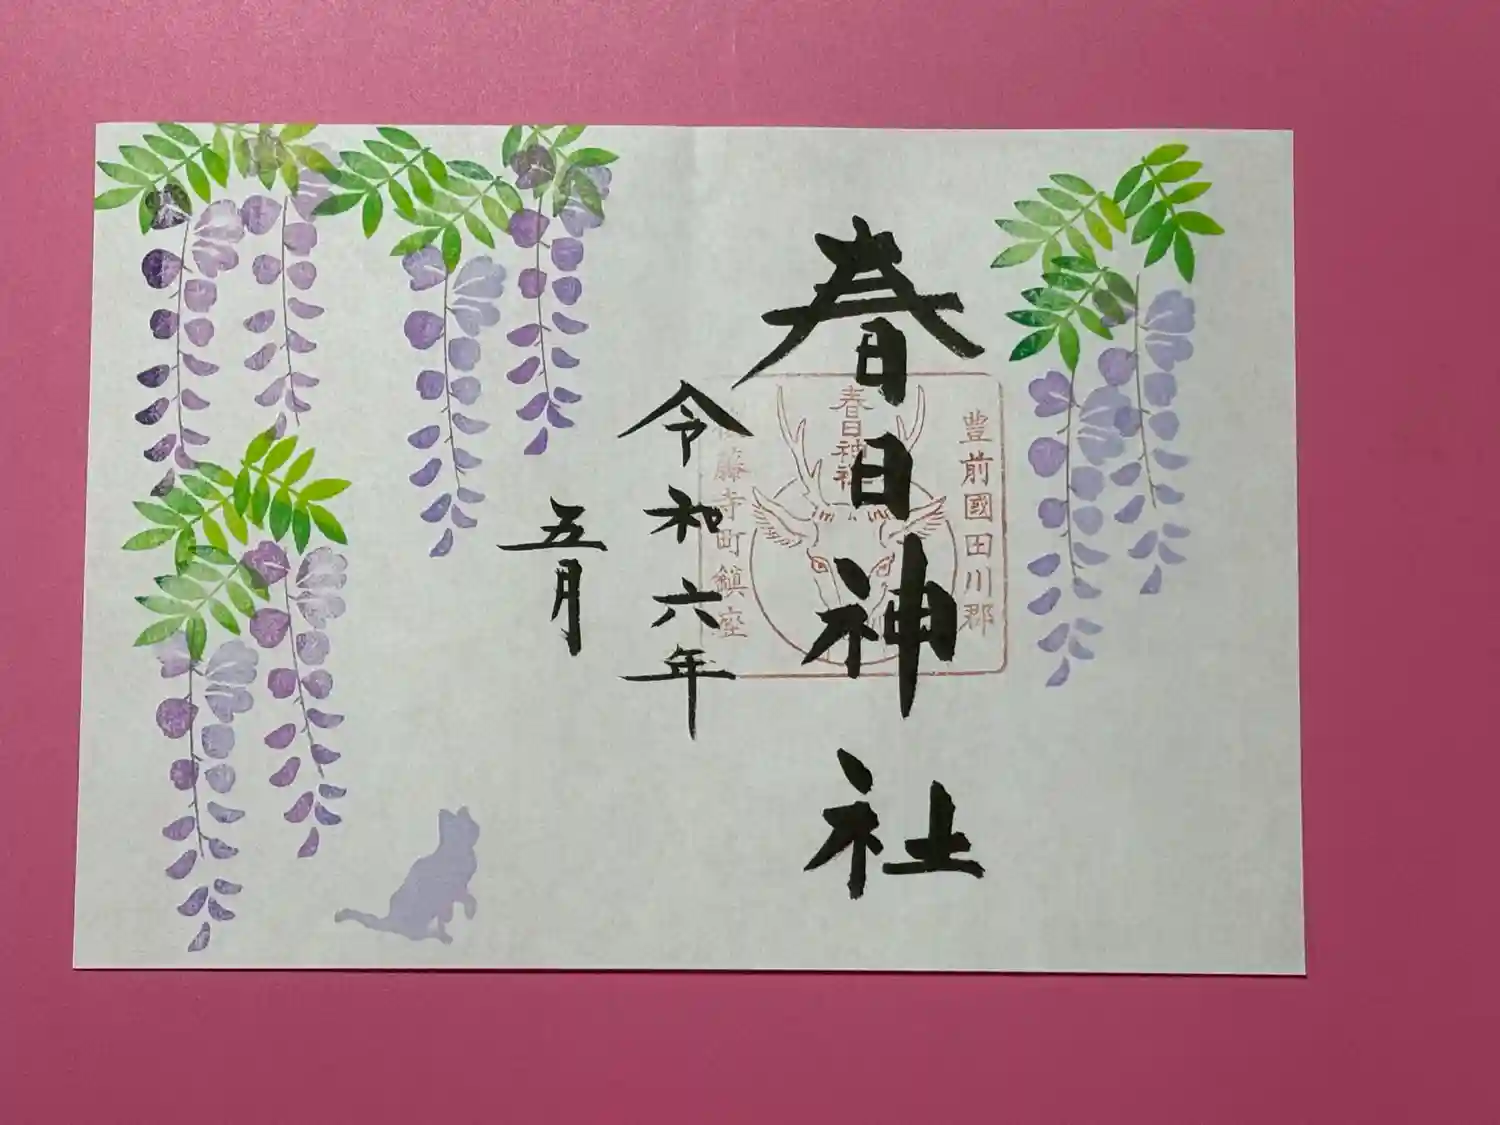 春日神社
豊前國田川郡
春日神社
藤寺町鎮座
令和六年
五月